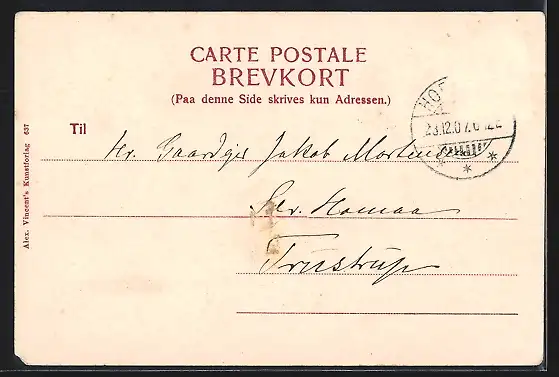 CARTE POSTALE
BREVKORT
(Paa denne Side skrives kun Adressen.)
Til
Hr. Gaardejer Jakob Mortensen
Homaa
Trustrup
Alex. Vincent's Kunstforlag 637
HO
23.12.07.